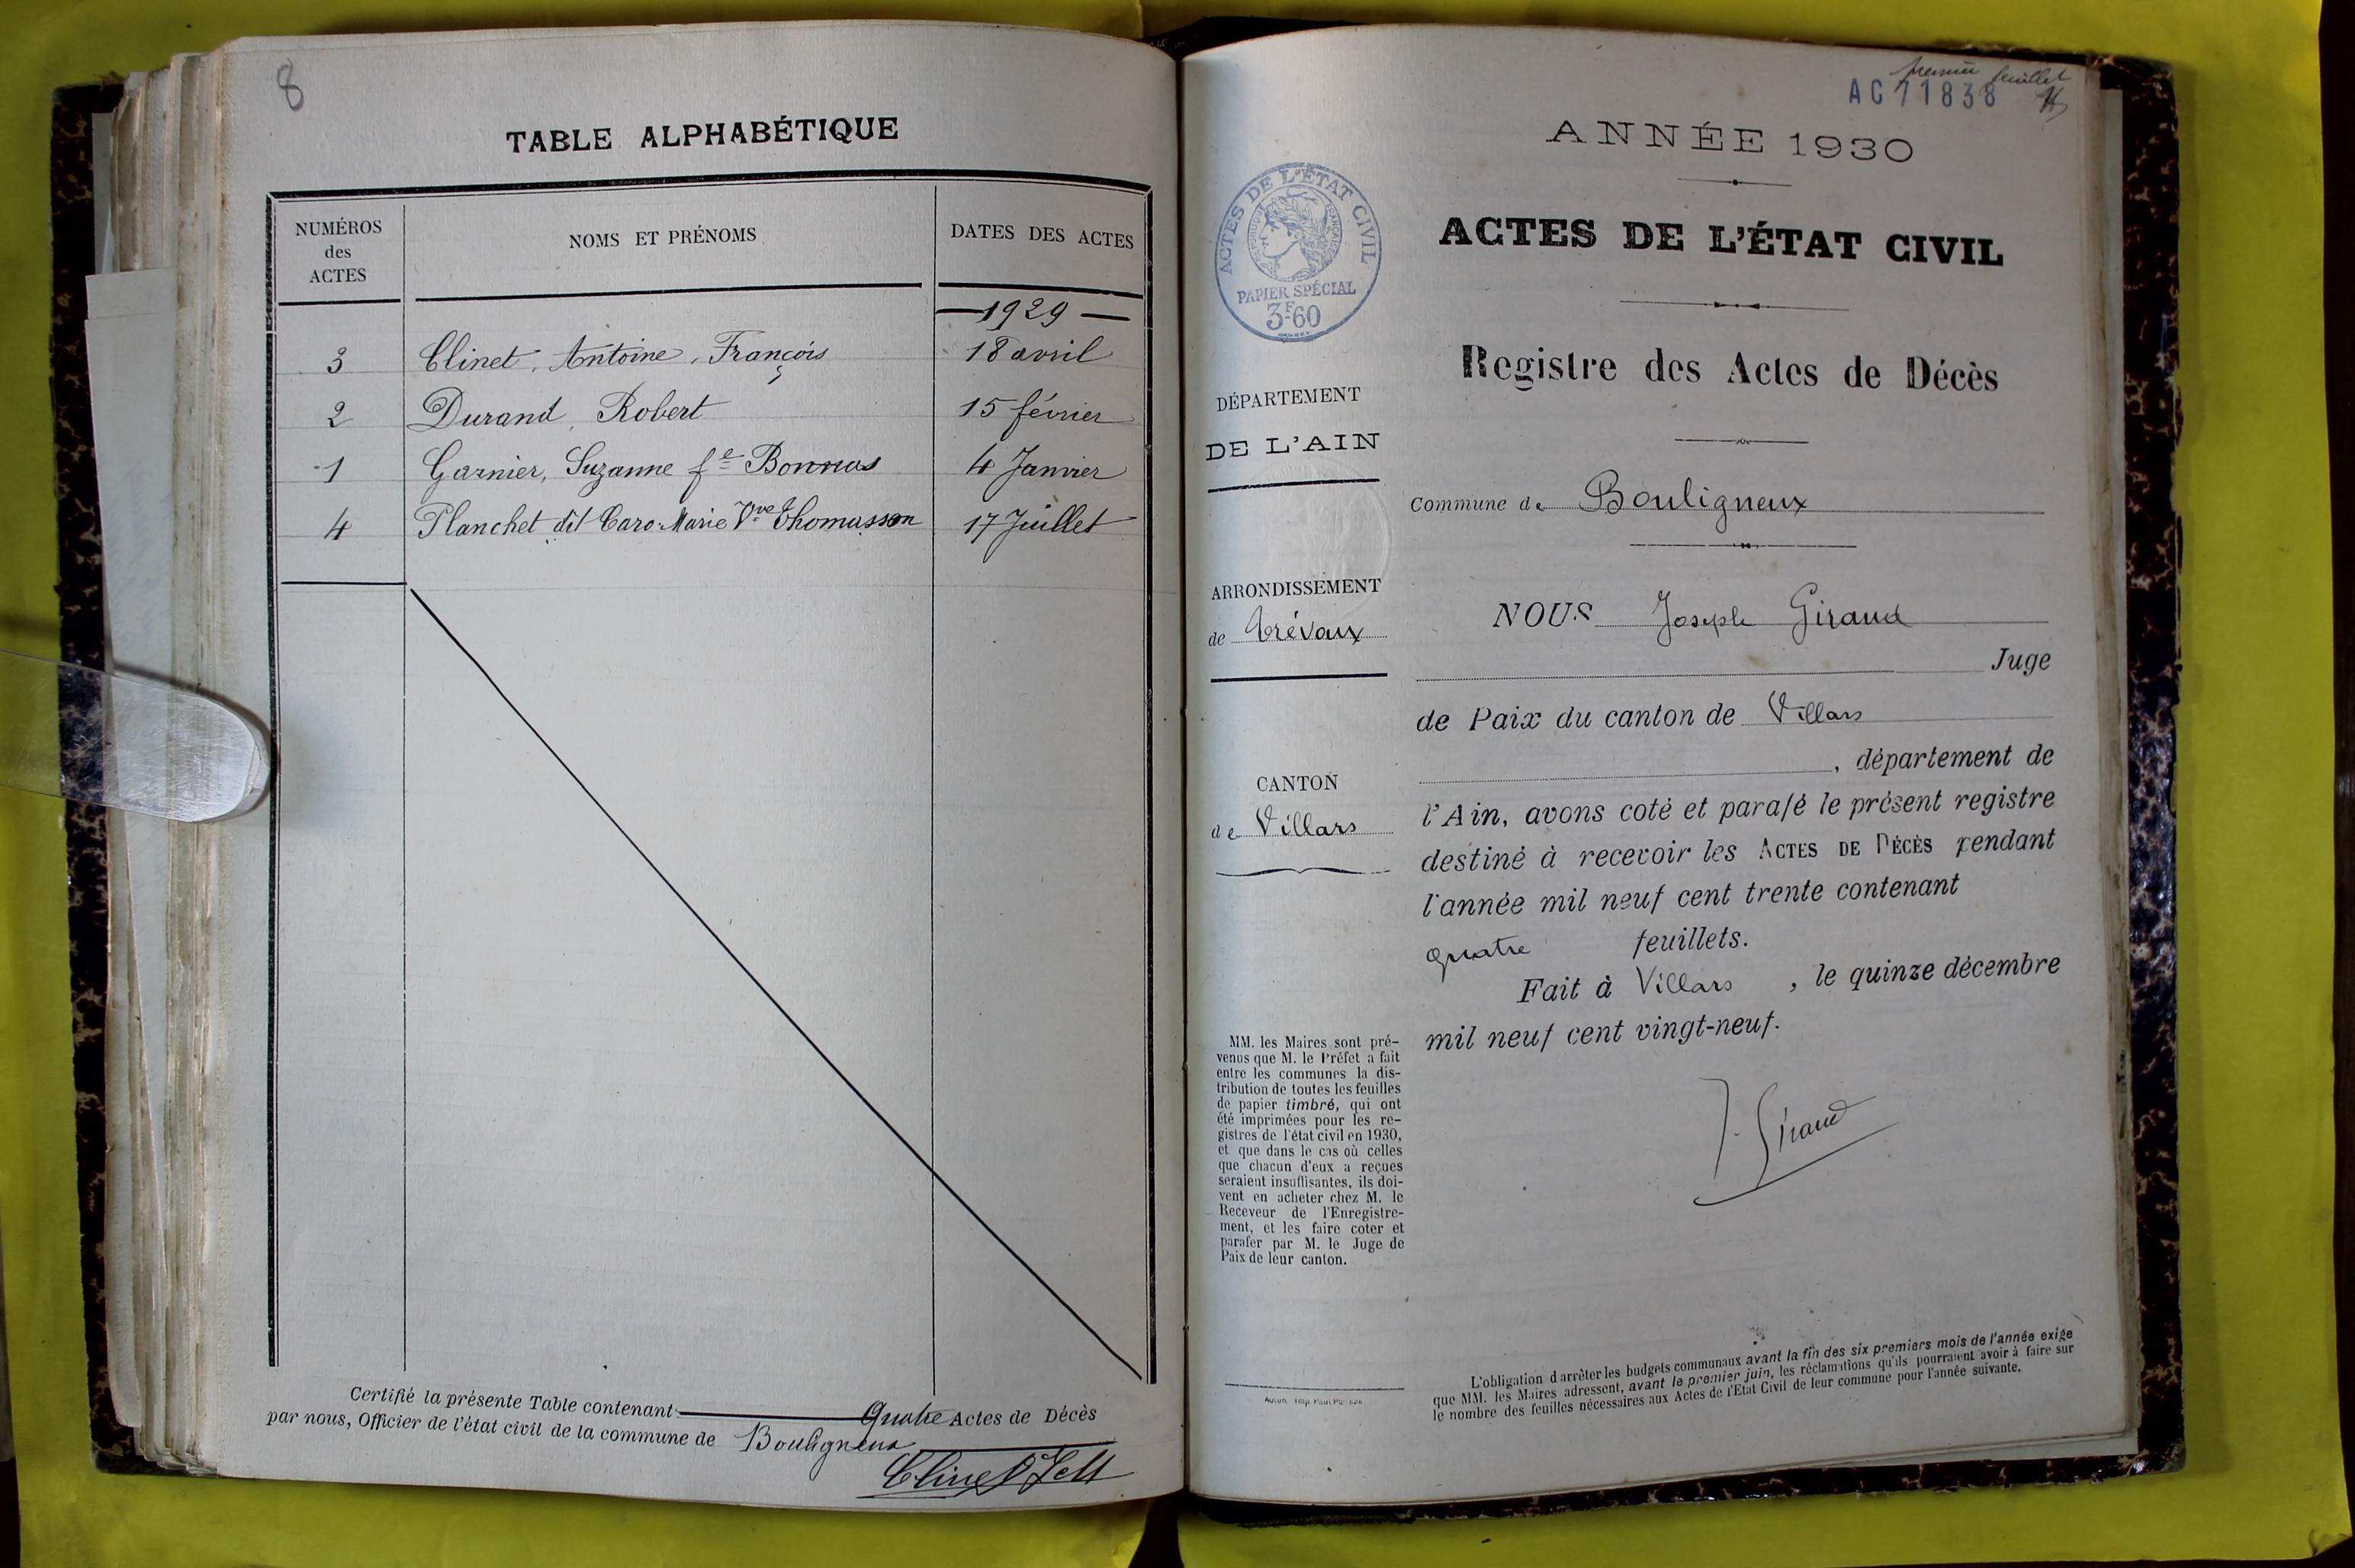 8
TABLE ALPHABÉTIQUE
NUMÉROS
des
ACTES
NOMS ET PRÉNOMS
DATES DES ACTES
— 1929 —
3 Clinet, Antoine, François 18 avril
2 Durand, Robert 15 février
1 Garnier, Suzanne fe Bonnus 4 Janvier
4 Planchet dit Caro Marie Vve Thomasson 17 Juillet
Certifié la présente Table contenant Quatre Actes de Décès
par nous, Officier de l'état civil de la commune de Bouligneux
premier feuillet
AC 71838
ANNÉE 1930
ACTES DE L'ÉTAT CIVIL
RÉPUBLIQUE FRANÇAISE
PAPIER SPÉCIAL
3F60
ACTES DE L'ÉTAT CIVIL
Registre des Actes de Décès
DÉPARTEMENT
DE L'AIN
Commune de Bouligneux
ARRONDISSEMENT
de Trévoux
NOUS Joseph Giraud
Juge
de Paix du canton de Villars
, département de
CANTON
de Villars
l'Ain, avons coté et parafé le présent registre
destiné à recevoir les ACTES DE DÉCÈS pendant
l'année mil neuf cent trente contenant
quatre feuillets.
Fait à Villars , le quinze décembre
mil neuf cent vingt-neuf.
J. Giraud
MM. les Maires sont pré-
venus que M. le Préfet a fait
entre les communes la dis-
tribution de toutes les feuilles
de papier timbré, qui ont
été imprimées pour les re-
gistres de l'état civil en 1930,
et que dans le cas où celles
que chacun d'eux a reçues
seraient insuffisantes, ils doi-
vent en acheter chez M. le
Receveur de l'Enregistre-
ment, et les faire coter et
parafer par M. le Juge de
Paix de leur canton.
L'obligation d'arrêter les budgets communaux avant la fin des six premiers mois de l'année exige
que MM. les Maires adressent, avant le premier juin, les réclamations qu'ils pourraient avoir à faire sur
le nombre des feuilles nécessaires aux Actes de l'Etat Civil de leur commune pour l'année suivante.